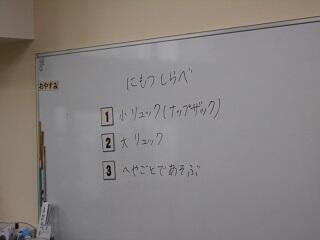 にもつしらべ
おやすみ
1 小リュック(ナップザック)
2 大リュック
3 へやごとであそぶ